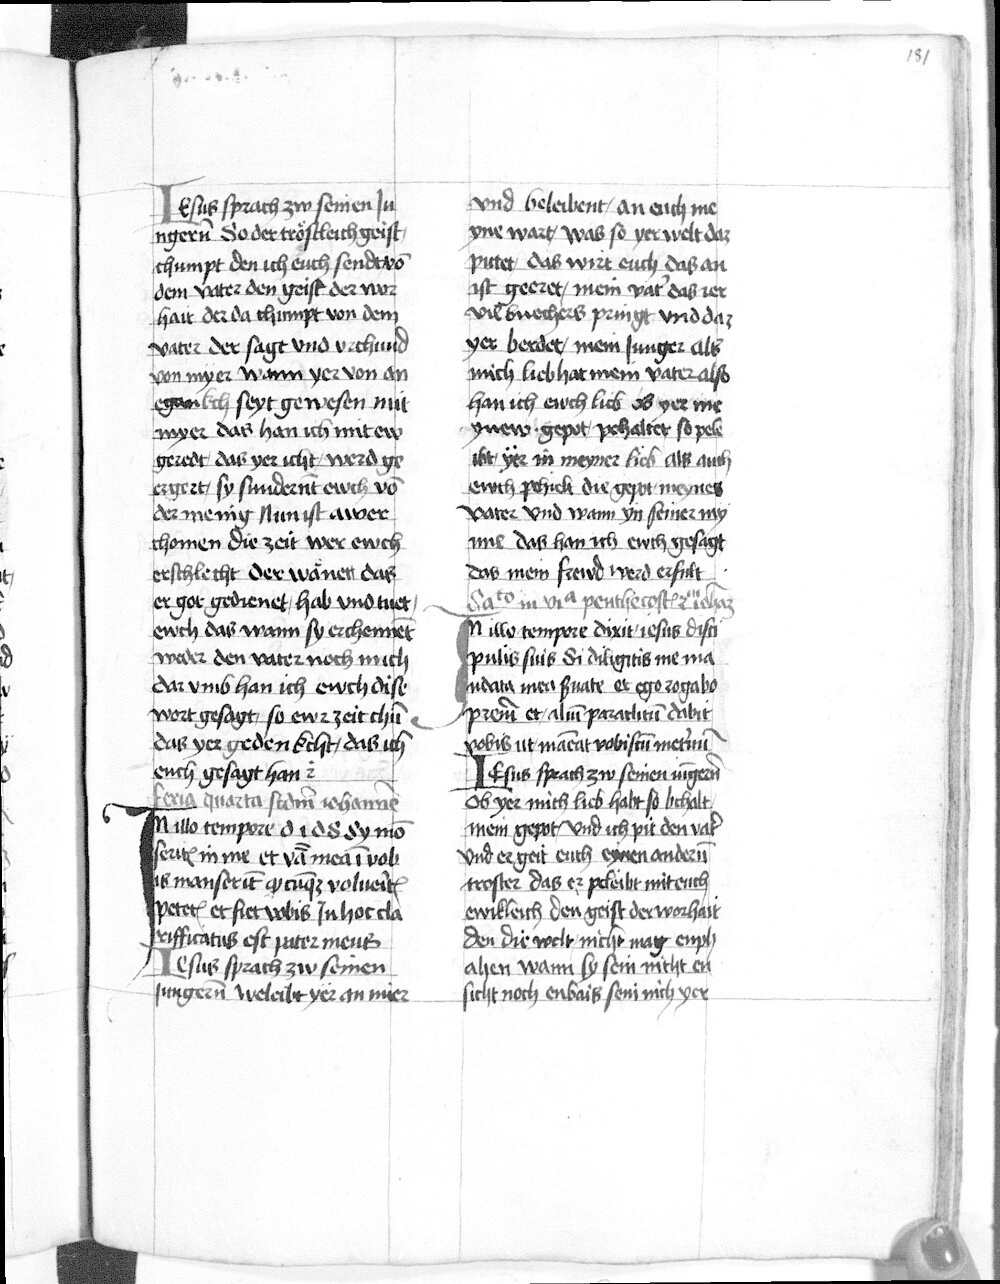 181
Iesus sprach zw seinen Ju
ngerñ So der tröstleich geist
chumpt den ich euch sendt võ
dem vater den geist der wor
hait der da chumpt von dem
vater der sagt vnd vrchund
von myer wann yer von an
egankch seyt gewesen mit
myer das han ich mit ew
geredt das yer icht werd ge
ergert / sy sundernt ewch võ
der menig Nun ist awer
chomen die zeit wer ewch
erschlecht der wänet das
er got gedienet / hab vnd tuet /
ewch das wann sy erchennet
weder den vater noch mich
dar vmb han ich ewch dise
wort gesagt / so ewr zeit chũ
das yer gedenkcht / das ich
euch gesagt han
feria quarta scdm̃ iohannē
IN illo tempore d i d s Sy mō
serit in me et v̄ba mea ī vob
is manserīt
petet et fiet vobis In hoc cla
rifficatus est pater meus
Iesus sprach zw seinen
Jungerñ weleibt yer an mier
vnd beleibent / an euch me
yne wart / was so yer welt daz
pittet / das wirt euch das an
ist geeret / mein vat' das ier
vil fruechers pringt vnd daz
yer berdet / mein Junger als
mich lieb hat mein vater also
han ich ewch lieb ob yer me
ynew gepot pehaltet so pele
ibt yer in meyner lieb als auch
ewch pehielt die gepot meynes
vater vnd wann yn seiner my
nne das han ich ewch gesagt
das mein frewd werd erfult
Sa^to in vi^a penthecost
IN illo tempore dixit iesus disci
pulis suis Si diligitis me ma
ndata mea s̃uate et ego rogabo
prem̃ et aliũ paraclitũ dabit
vobis ut māeat vobiscũ
Iesus sprach zw seinen iũgerñ
Ob yer mich lieb habt so behalt
mein gepot / vnd ich pit den vat'
vnd er geit euch eynen anderñ
troster das er peleibt mit euch
ewikleich den geist der worhait
den die welt nicht mag enph
ahen wann sy sein nicht en
sicht noch enbais sein nich yer